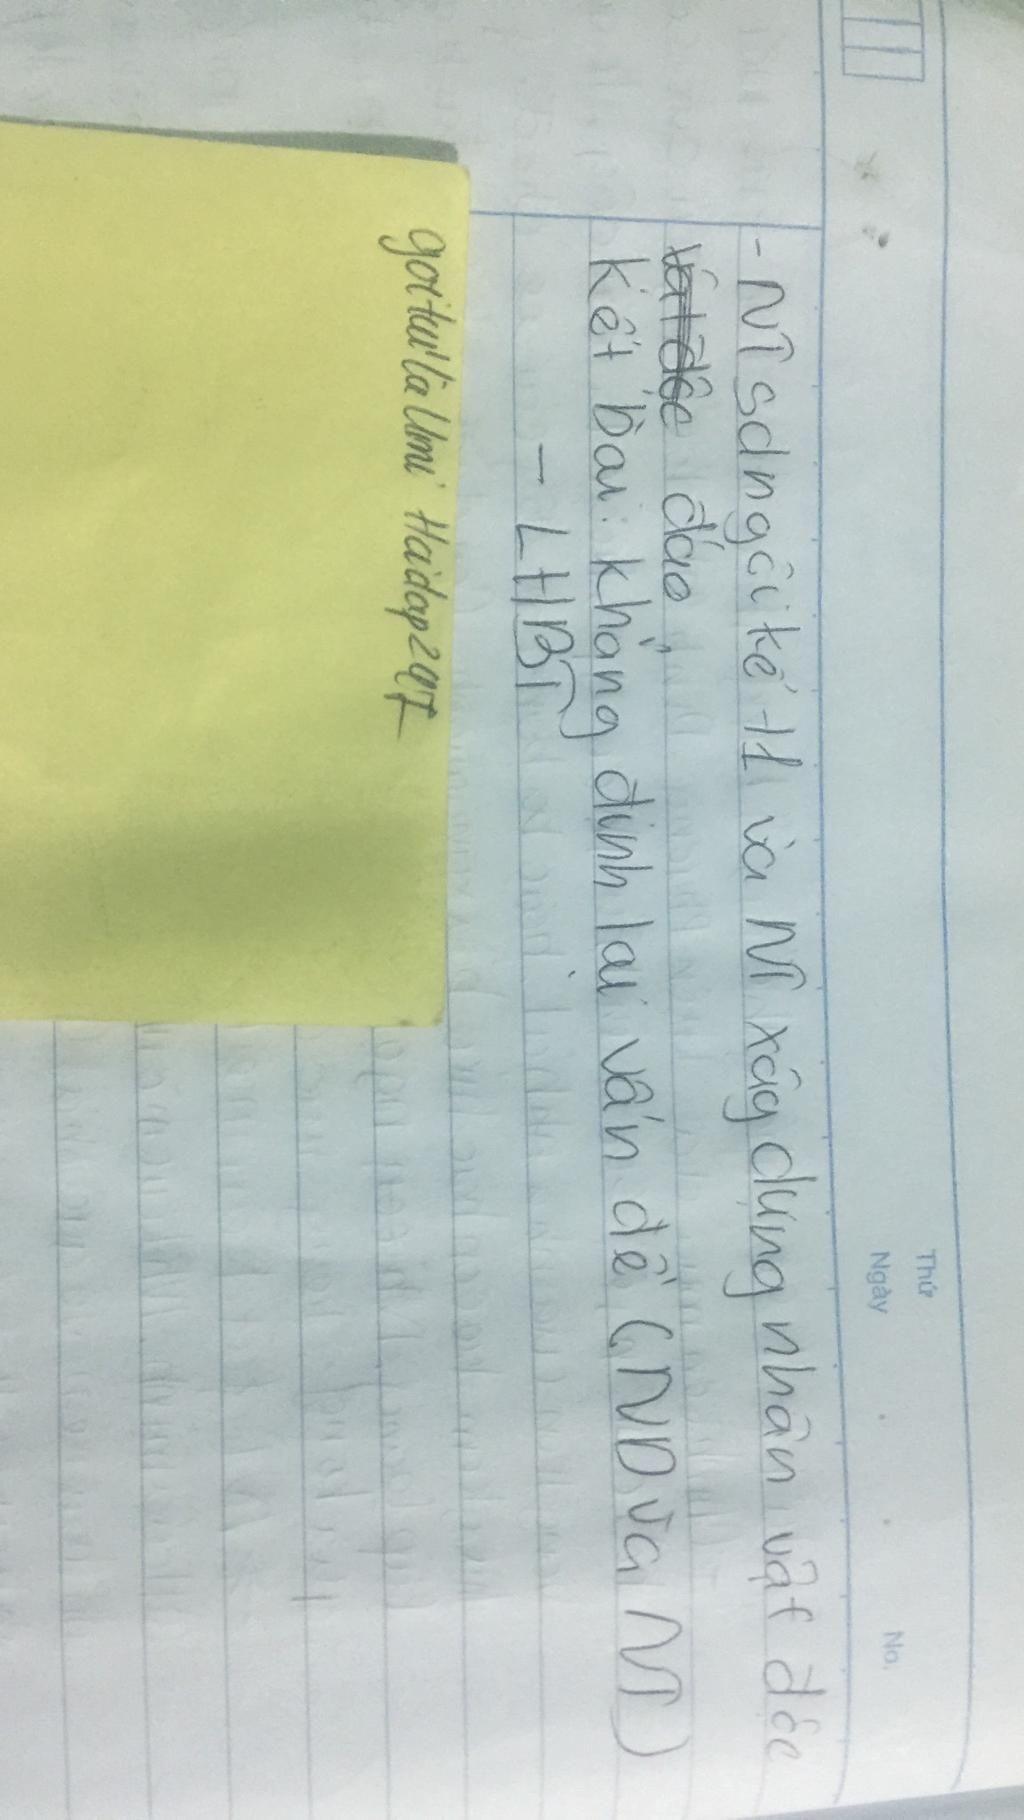 Thứ
Ngày
No.
- NT sd ngôi kể t1 và NT xây dựng nhân vật độc
vật độc đáo
Kết bài: khẳng định lại vấn đề (ND và NT)
- LHBT
gọi tui là Umi Haidap247